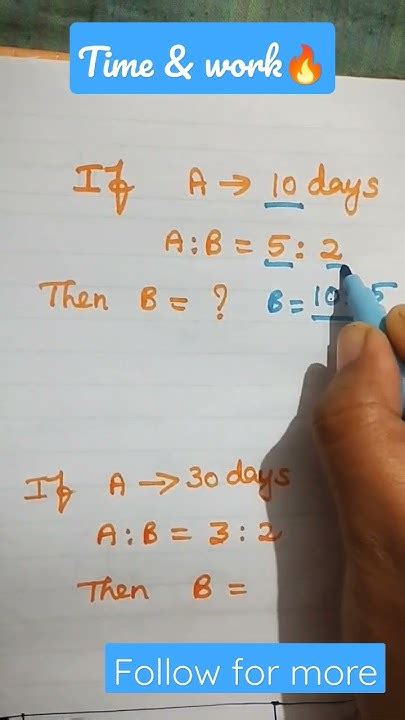 Time & work🔥
If A → 10 days
A : B = 5 : 2
Then B = ? B = 10 5
If A → 30 days
A : B = 3 : 2
Then B =
Follow for more